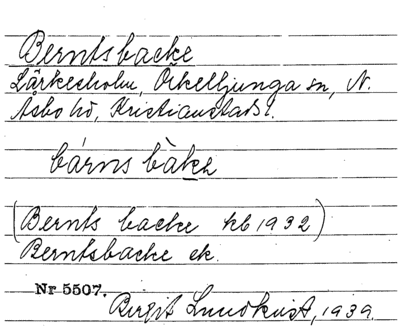 Berntsbacke
Lärkesholm, Örkelljunga sn, N.
Åsbo hd, Kristianstads l.
bárns bàkɛ
(Bernts backe kb 1932)
Berntsbacke ek.
Nr 5507.
Birgit Lundkvist, 1939.